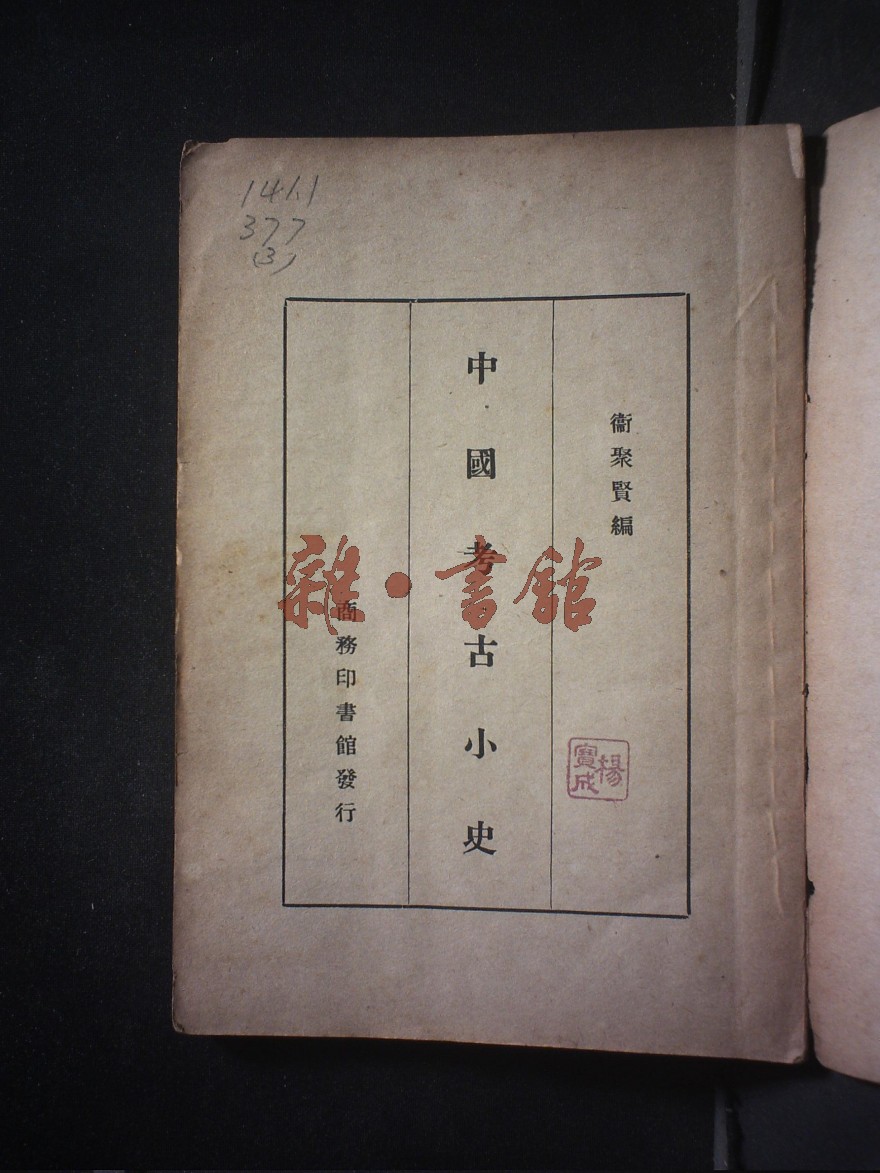 141.1
377
(3)
衞聚賢編
中國考古小史
商務印書館發行
楊寶成
雜·書館